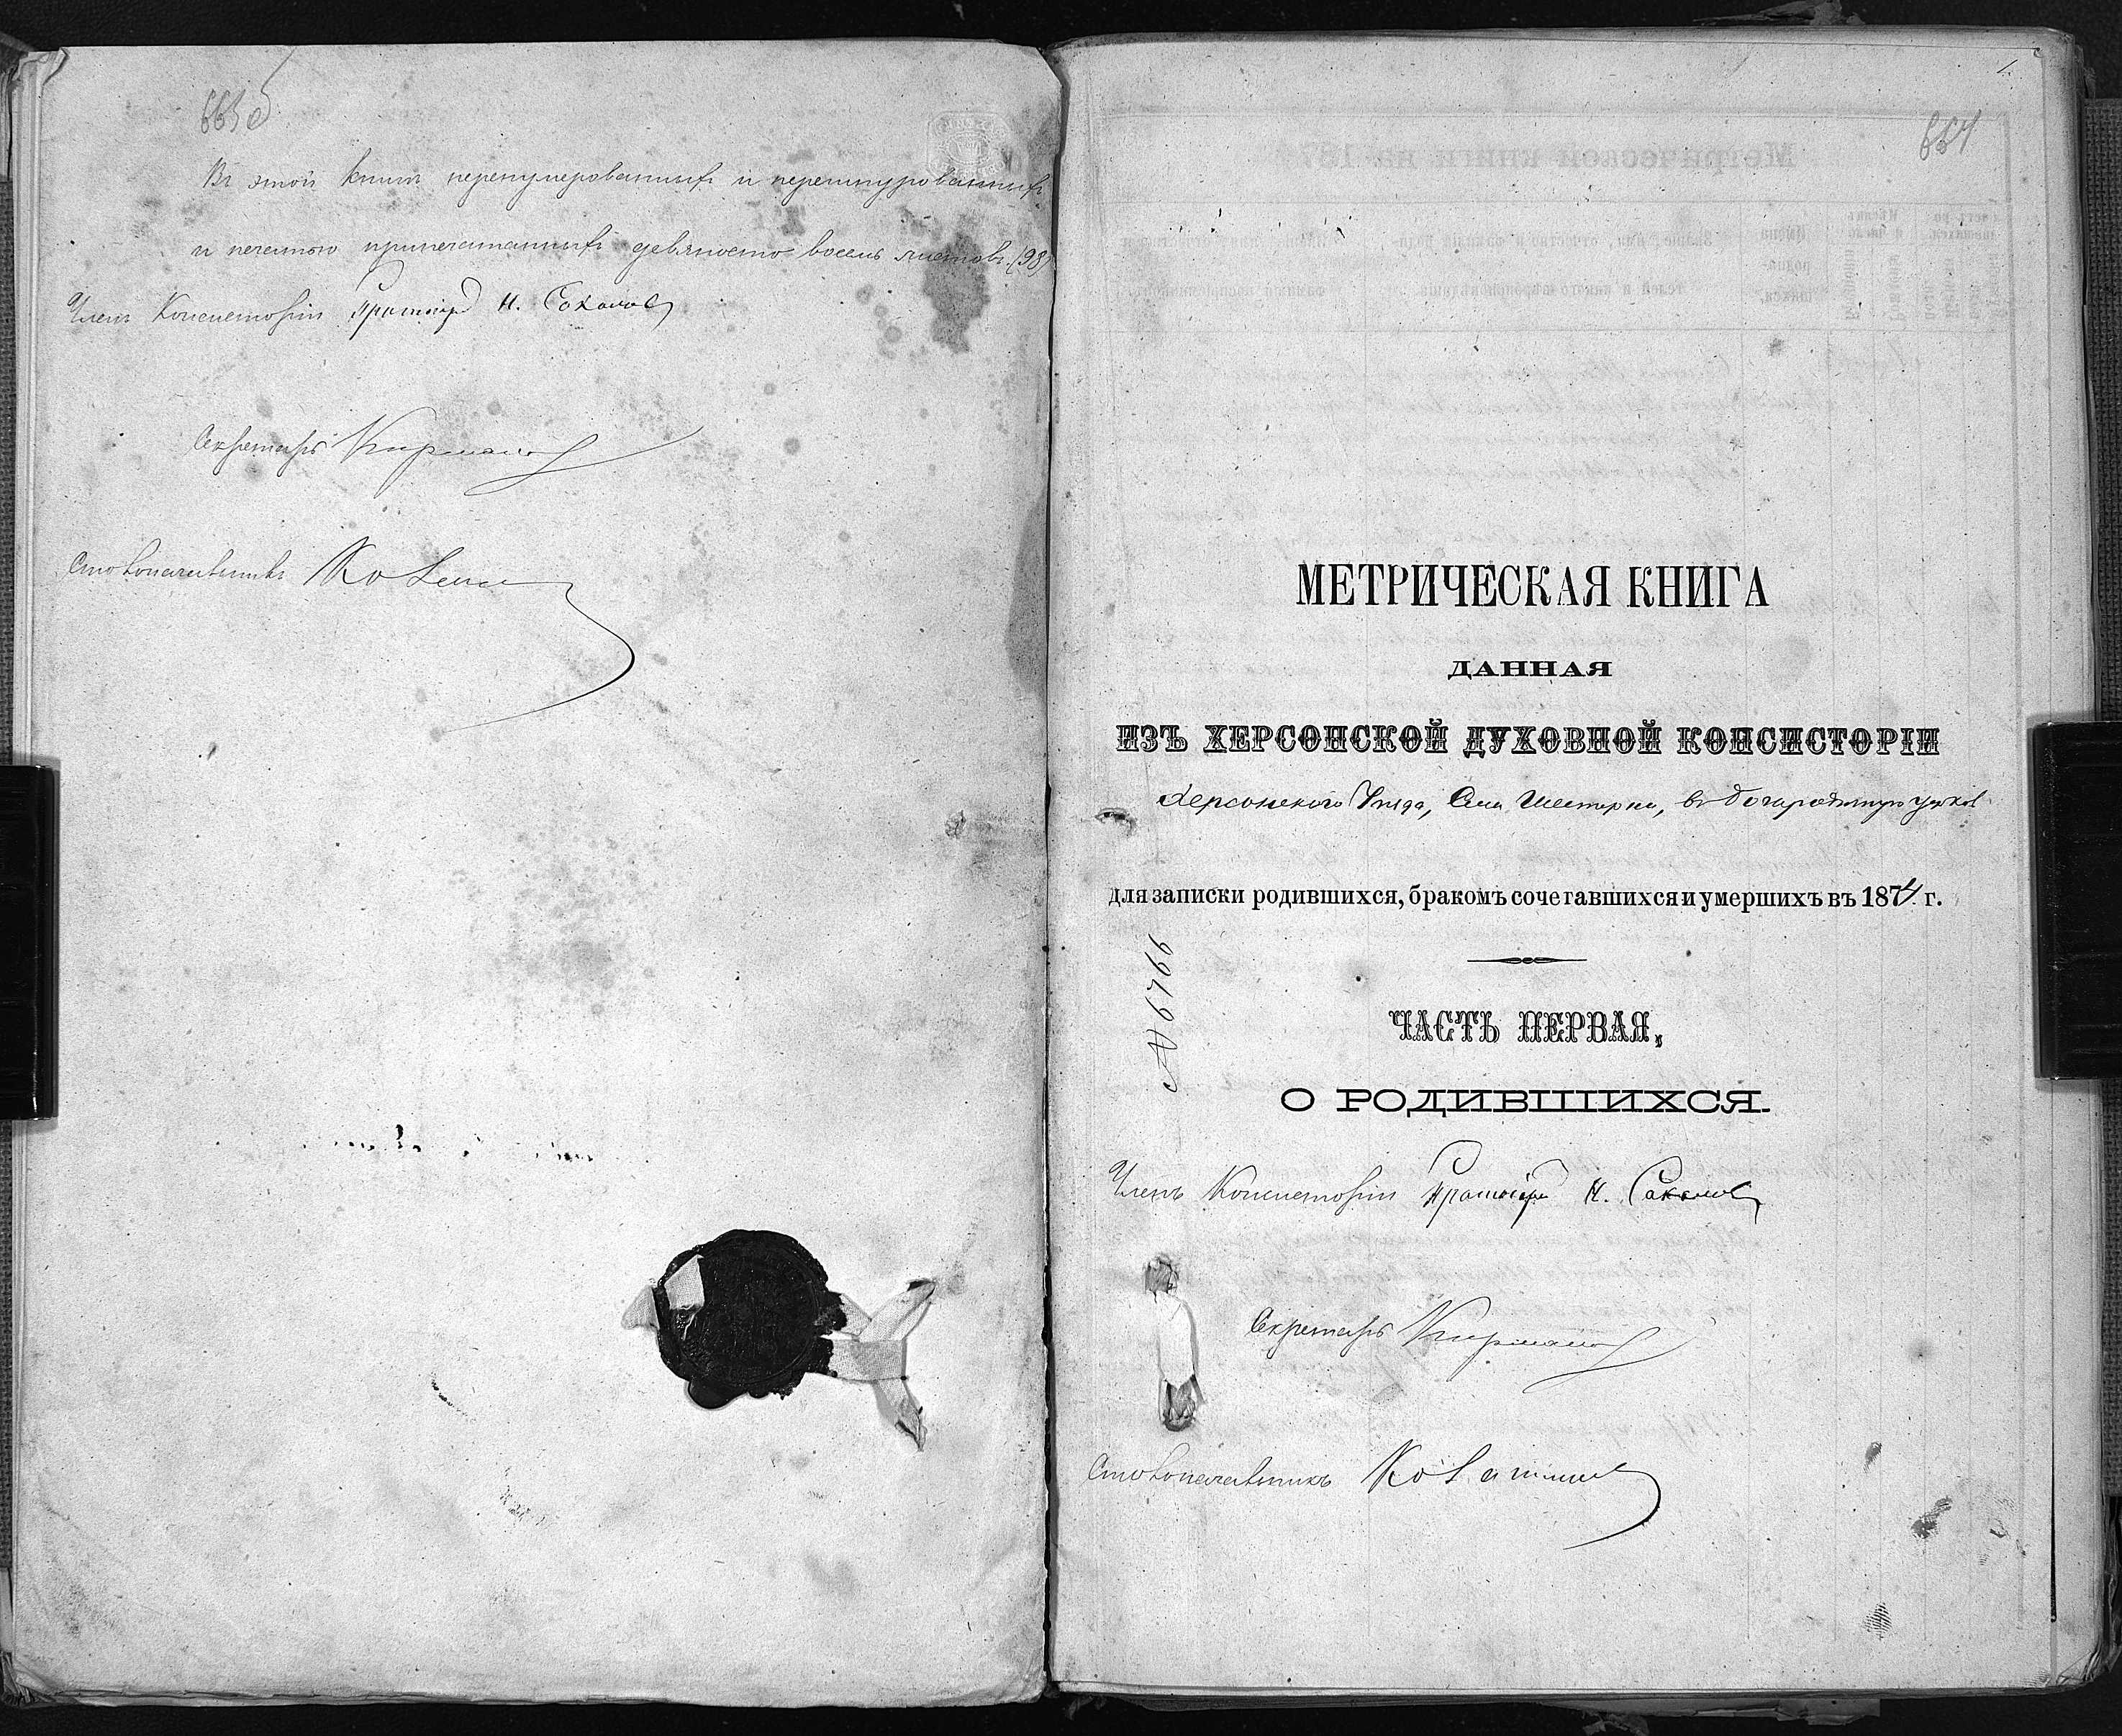 663 об
Въ этой книгѣ перенумерованныхъ и перешнурованныхъ
и печатью припечатанныхъ девяносто восемь листовъ (98)
Членъ Консисторіи Протоіерей Н. Соколовъ
Секретарь
Столоначальникъ
1.
664
МЕТРИЧЕСКАЯ КНИГА
ДАННАЯ
ИЗЪ ХЕРСОНСКОЙ ДУХОВНОЙ КОНСИСТОРІИ
Херсонскаго Уѣзда, Села Шестерни, въ Богородичную церковь
для записки родившихся, бракомъ сочетавшихся и умершихъ въ 1874 г.
№ 6766
ЧАСТЬ ПЕРВАЯ,
О РОДИВШИХСЯ.
Членъ Консисторіи Протоіерей Н. Соколовъ
Секретарь
Столоначальникъ